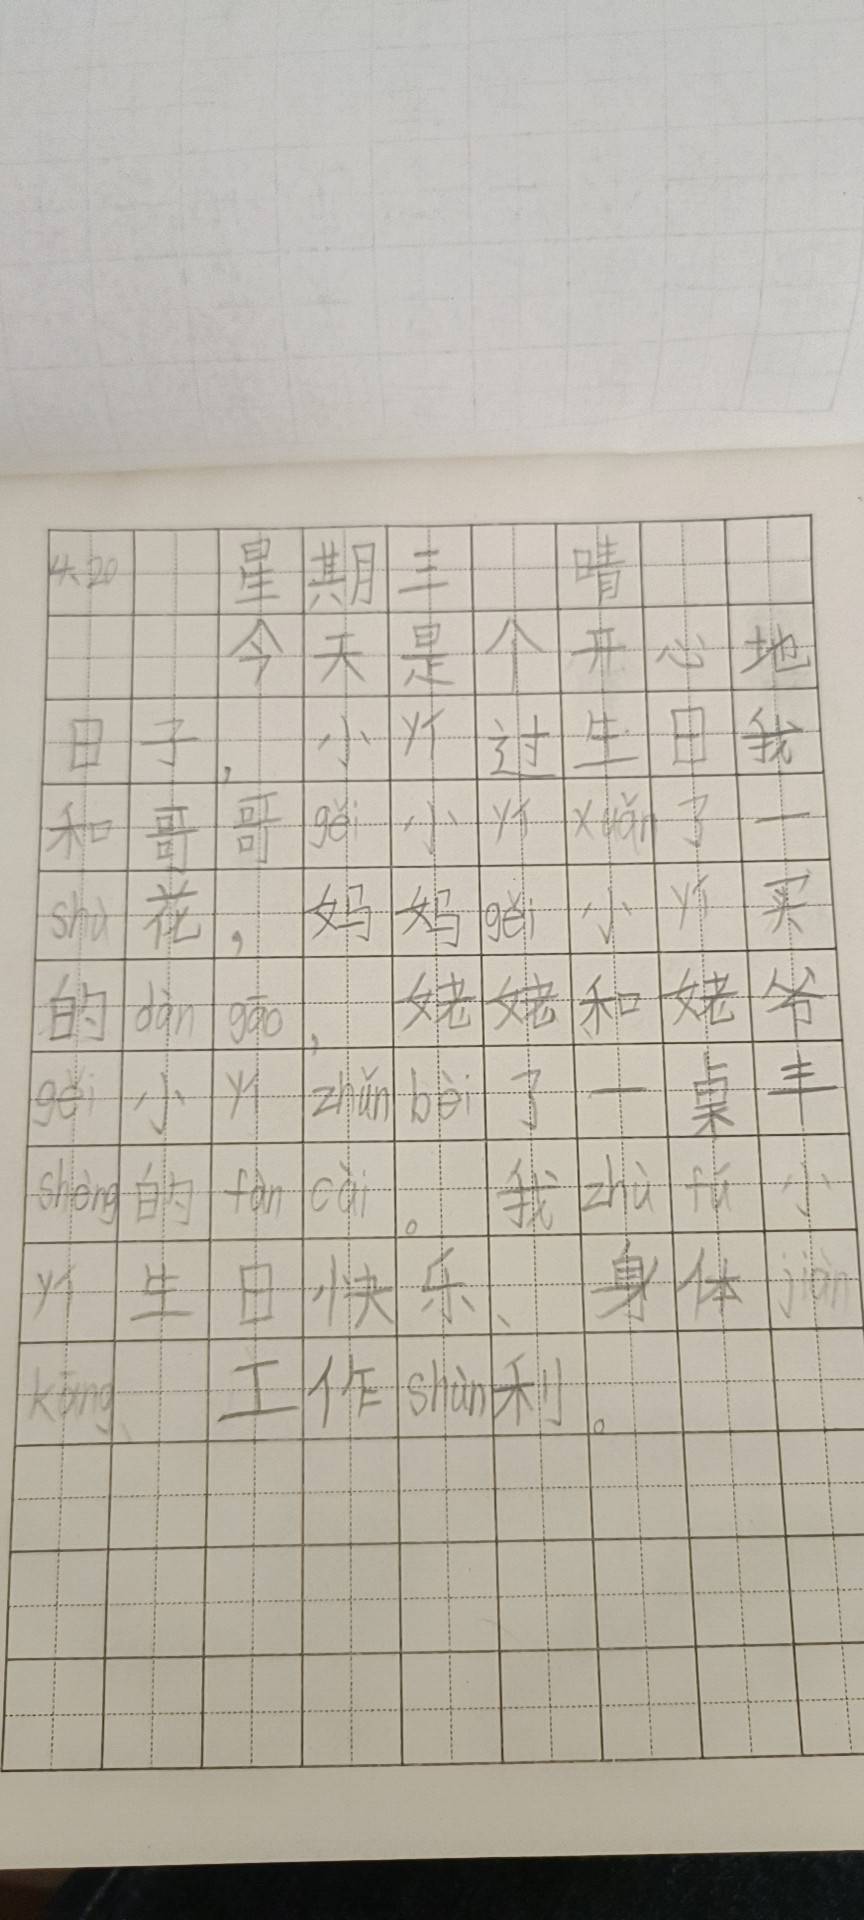 4.20 星期三 晴
今天是个开心地
日子，小丫过生日我
和哥哥gěi小丫xuǎn了一
shù花，妈妈gěi小丫买
的dàn gāo，姥姥和姥爷
gěi小丫zhǔn bèi了一桌丰
shèng的fàn cài。我zhù fú小
丫生日快乐、身体jiàn
kāng、工作shùn利。